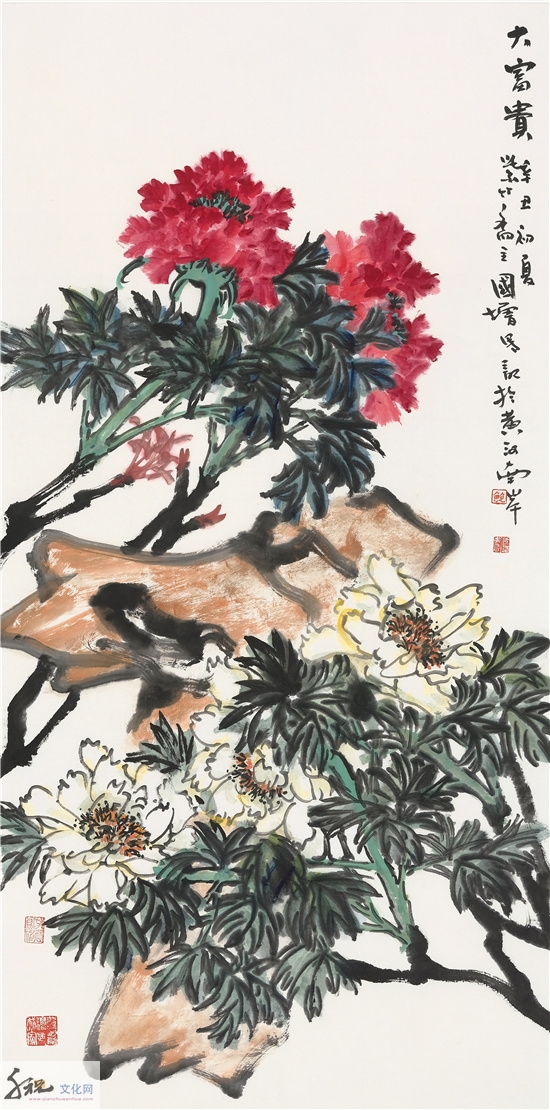 大富貴
辛丑初夏
紫竹斋主國增寫記於黄江南岸
千祝
文化网
www.qianzhuwenhua.com